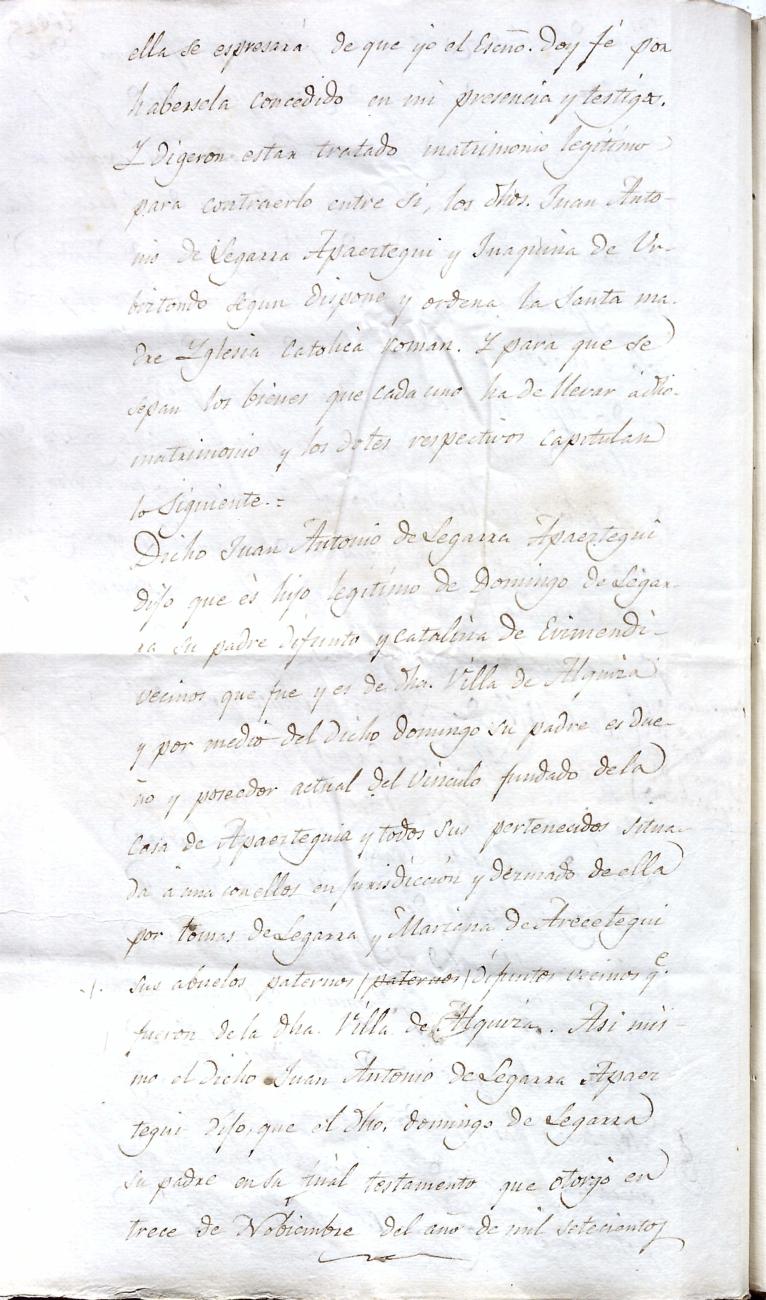 ella se espresará de que yo el Escno. Doy fé por
habersela concedido en mi presencia y testigos.
Y digeron estar tratado matrimonio legitimo
para contraerlo entre si, los dhos. Juan Anto-
nio de Legarra Apaeztegui y Juaquina de Ur-
bztondo segun dispone y ordena la Santa ma-
dre Yglesia Catolica roman. Y para que se
sepan los bienes que cada uno ha de llevar á dho.
matrimonio y los dotes respectivos capitulan
lo siguiente.=
Dicho Juan Antonio de Legarra Apaeztegui
dijo que és hijo legitimo de Domingo de Legar-
ra su padre difunto y Catalina de Erimendi-
vecinos que fue y es de dha. Villa de Alquiza
y por medio del dicho domingo su padre es due-
ño y poseedor actual del vinculo fundado de la
Casa de Apaezteguia y todos sus pertenecidos situa-
da á una con ellos en jurisdicción y dezmado de ella
por tomas de Legarra y Mariana de Arecetegui
sus abuelos paternos (paternos) difuntos vecinos qe.
fueron de la dha. Villa de Alquiza. Asi mis-
mo el dicho Juan Antonio de Legarra Apaez
tegui dijo, que el dho. domingo de Legarra
su padre en su final testamento que otorgó en
trece de Nobiembre del año de mil setecientos